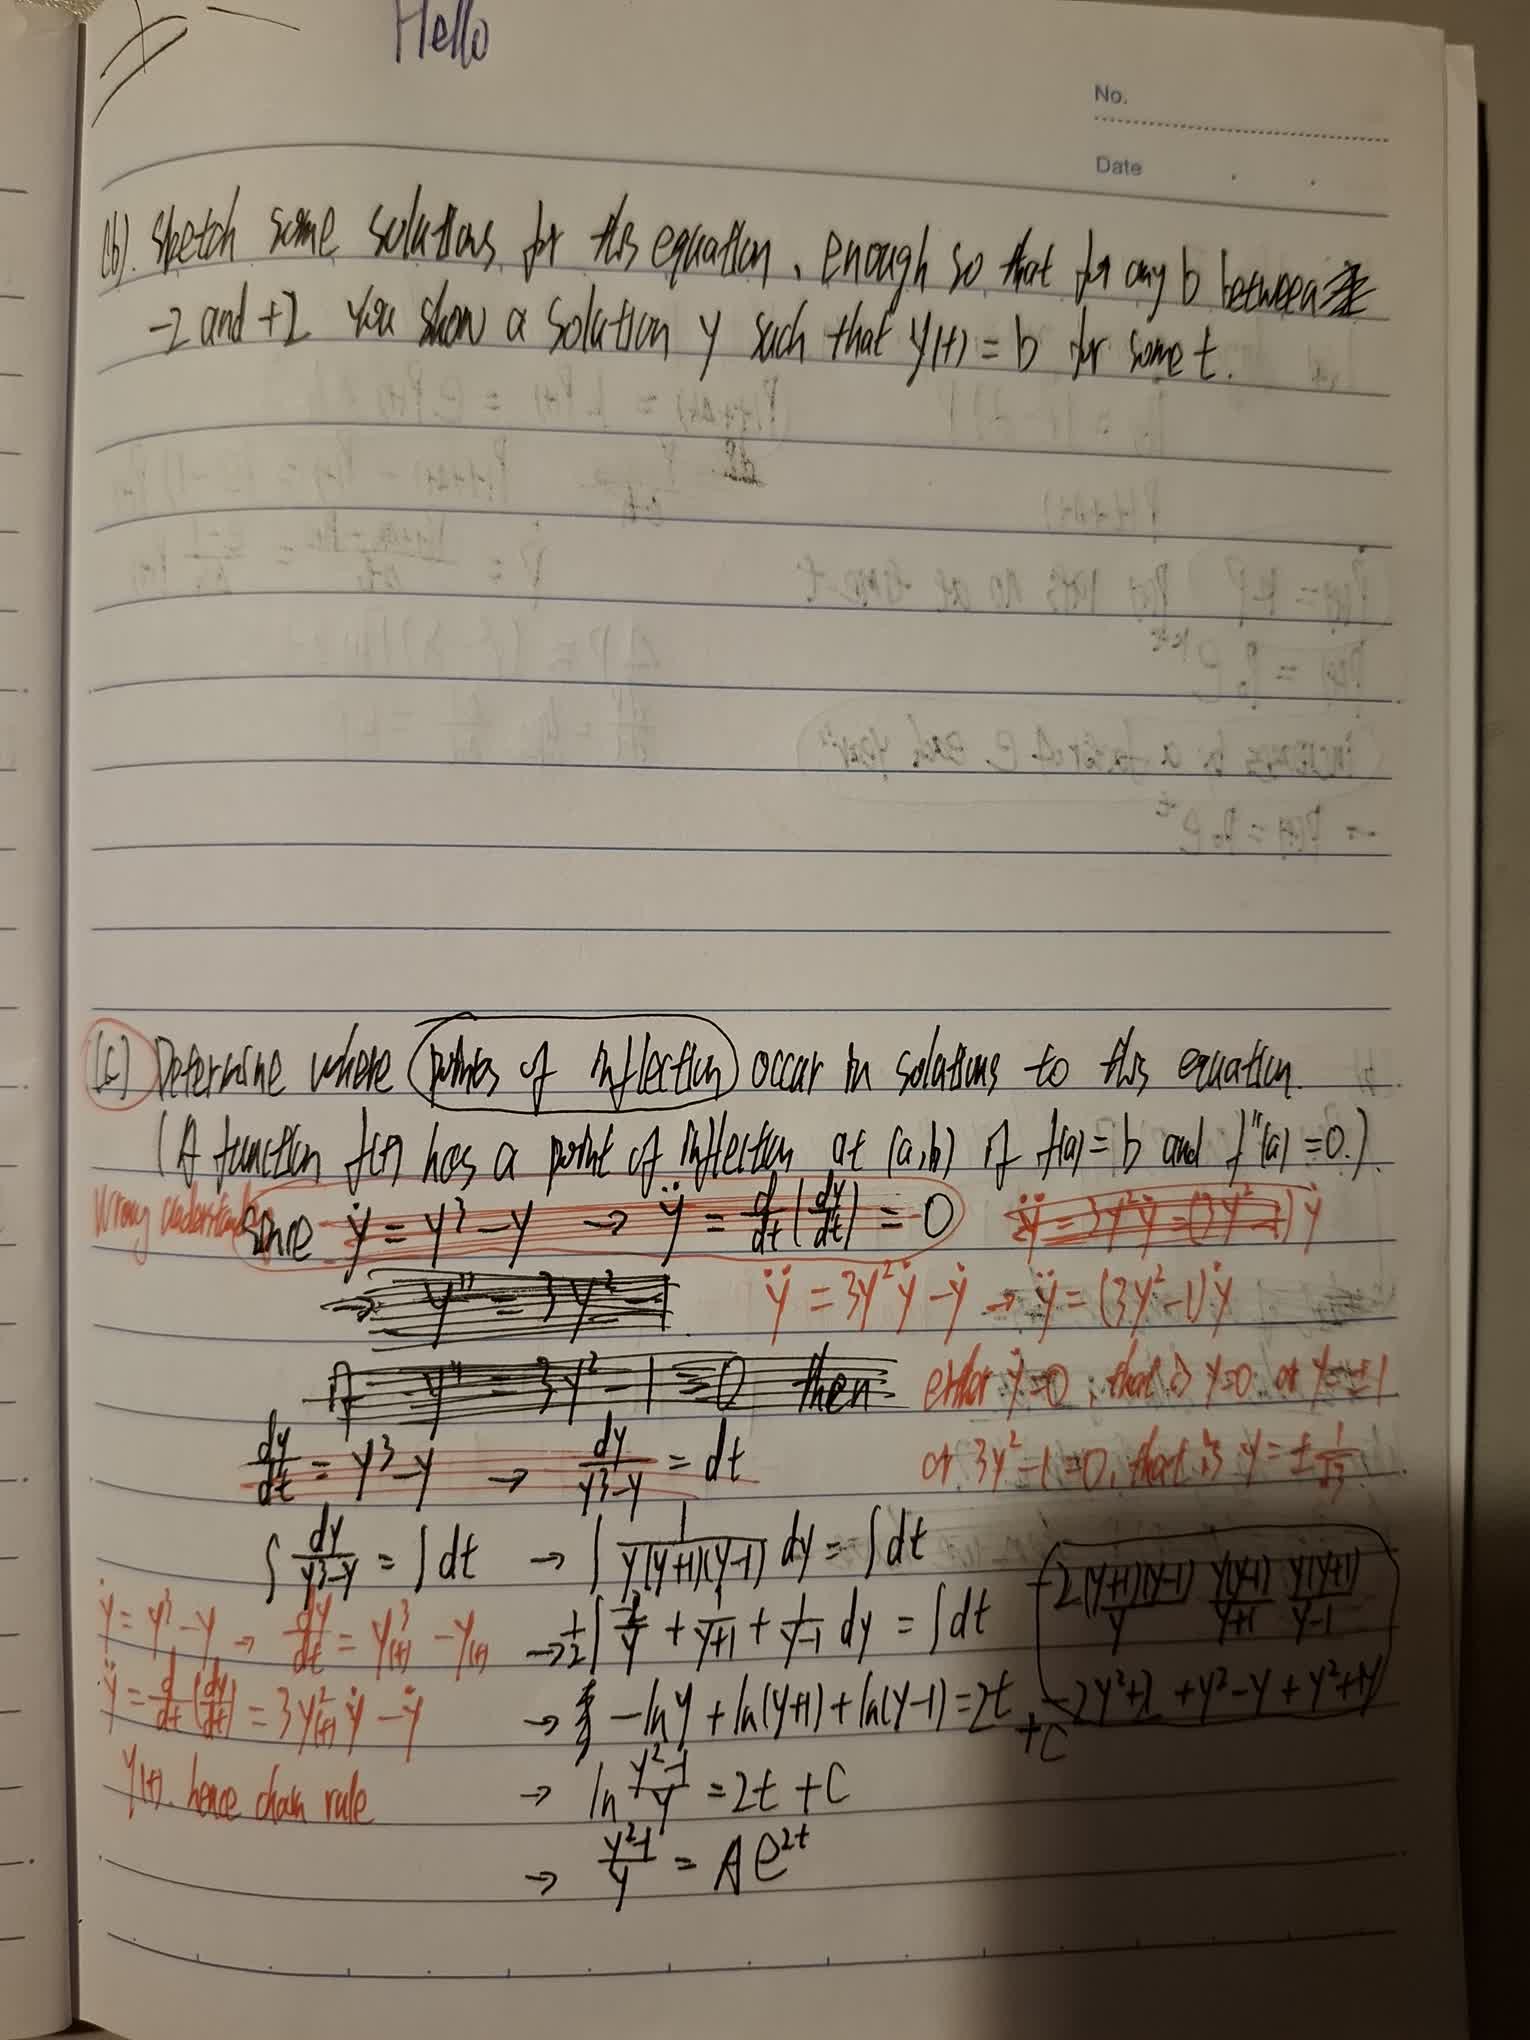 Hello
No.
Date
(b). Sketch some solutions for this equation, enough so that for any b between
-2 and +2 you show a solution y such that y(t) = b for some t.
(c) Determine where points of inflection occur in solutions to this equation.
(A function f(t) has a point of inflection at (a,b) if f(a) = b and f''(a) = 0.).
Wrong
since ẏ = y³ - y → ÿ = d/dt (dy/dt) = 0
→ y'' = 3y² - 1
ÿ = 3y²ẏ - ẏ → ÿ = (3y² - 1)ẏ
if y'' = 3y² - 1 = 0 then
either ẏ = 0, that is y=0 or y = ±1
or 3y² - 1 = 0, that is y = ± 1/√3
dy/dt = y³ - y → dy/(y³-y) = dt
∫ dy/(y³-y) = ∫ dt → ∫ 1/(y(y+1)(y-1)) dy = ∫ dt
→ 1/2 ∫ -2/y + 1/(y+1) + 1/(y-1) dy = ∫ dt
-2(y+1)(y-1)/y y(y-1)/(y+1) y(y+1)/(y-1)
-2y²+2 + y² - y + y² + y
→ - ln y + ln(y+1) + ln(y-1) = 2t + C
→ ln (y²-1)/y = 2t + C
→ (y²-1)/y = A e^2t
ẏ = y³ - y → dy/dt = y³(t) - y(t)
ÿ = d/dt (dy/dt) = 3y²(t) ẏ - ẏ
y(t). hence chain rule